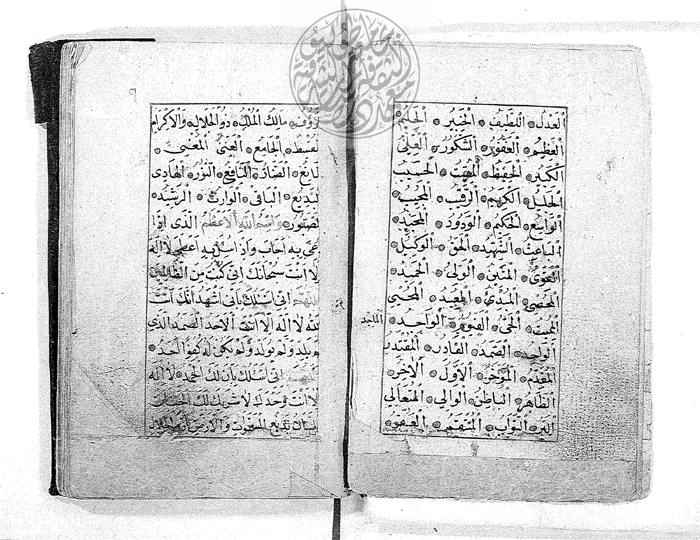 العدل اللطيف الخبير الحليم
العظيم الغفور الشكور العلي
الكبير الحفيظ المقيت الحسيب
الجليل الكريم الرقيب المجيب
الواسع الحكيم الودود المجيد
الباعث الشهيد الحق الوكيل
القوي المتين الولي الحميد
المحصي المبدئ المعيد المحيي
المميت الحي القيوم الواجد الماجد
الواحد الصمد القادر المقتدر
المقدم المؤخر الأول الآخر
الظاهر الباطن الوالي المتعالي
البر التواب المنتقم العفو
رؤوف مالك الملك ذو الجلال والاكرام
المقسط الجامع الغني المغني
المانع الضار النافع النور الهادي
البديع الباقي الوارث الرشيد
الصبور واسم الله الاعظم الذي اذا
دعي به اجاب واذا سئل به اعطى لا اله
الا انت سبحانك اني كنت من الظالمين
اللهم اني اسئلك باني اشهد انك انت
الله لا اله الا انت الاحد الصمد الذي
لم يلد ولم يولد ولم يكن له كفوا احد
اللهم اني اسئلك بان لك الحمد لا اله
الا انت وحدك لا شريك لك الحنان
المنان بديع السموات والارض يا ذا الجلال